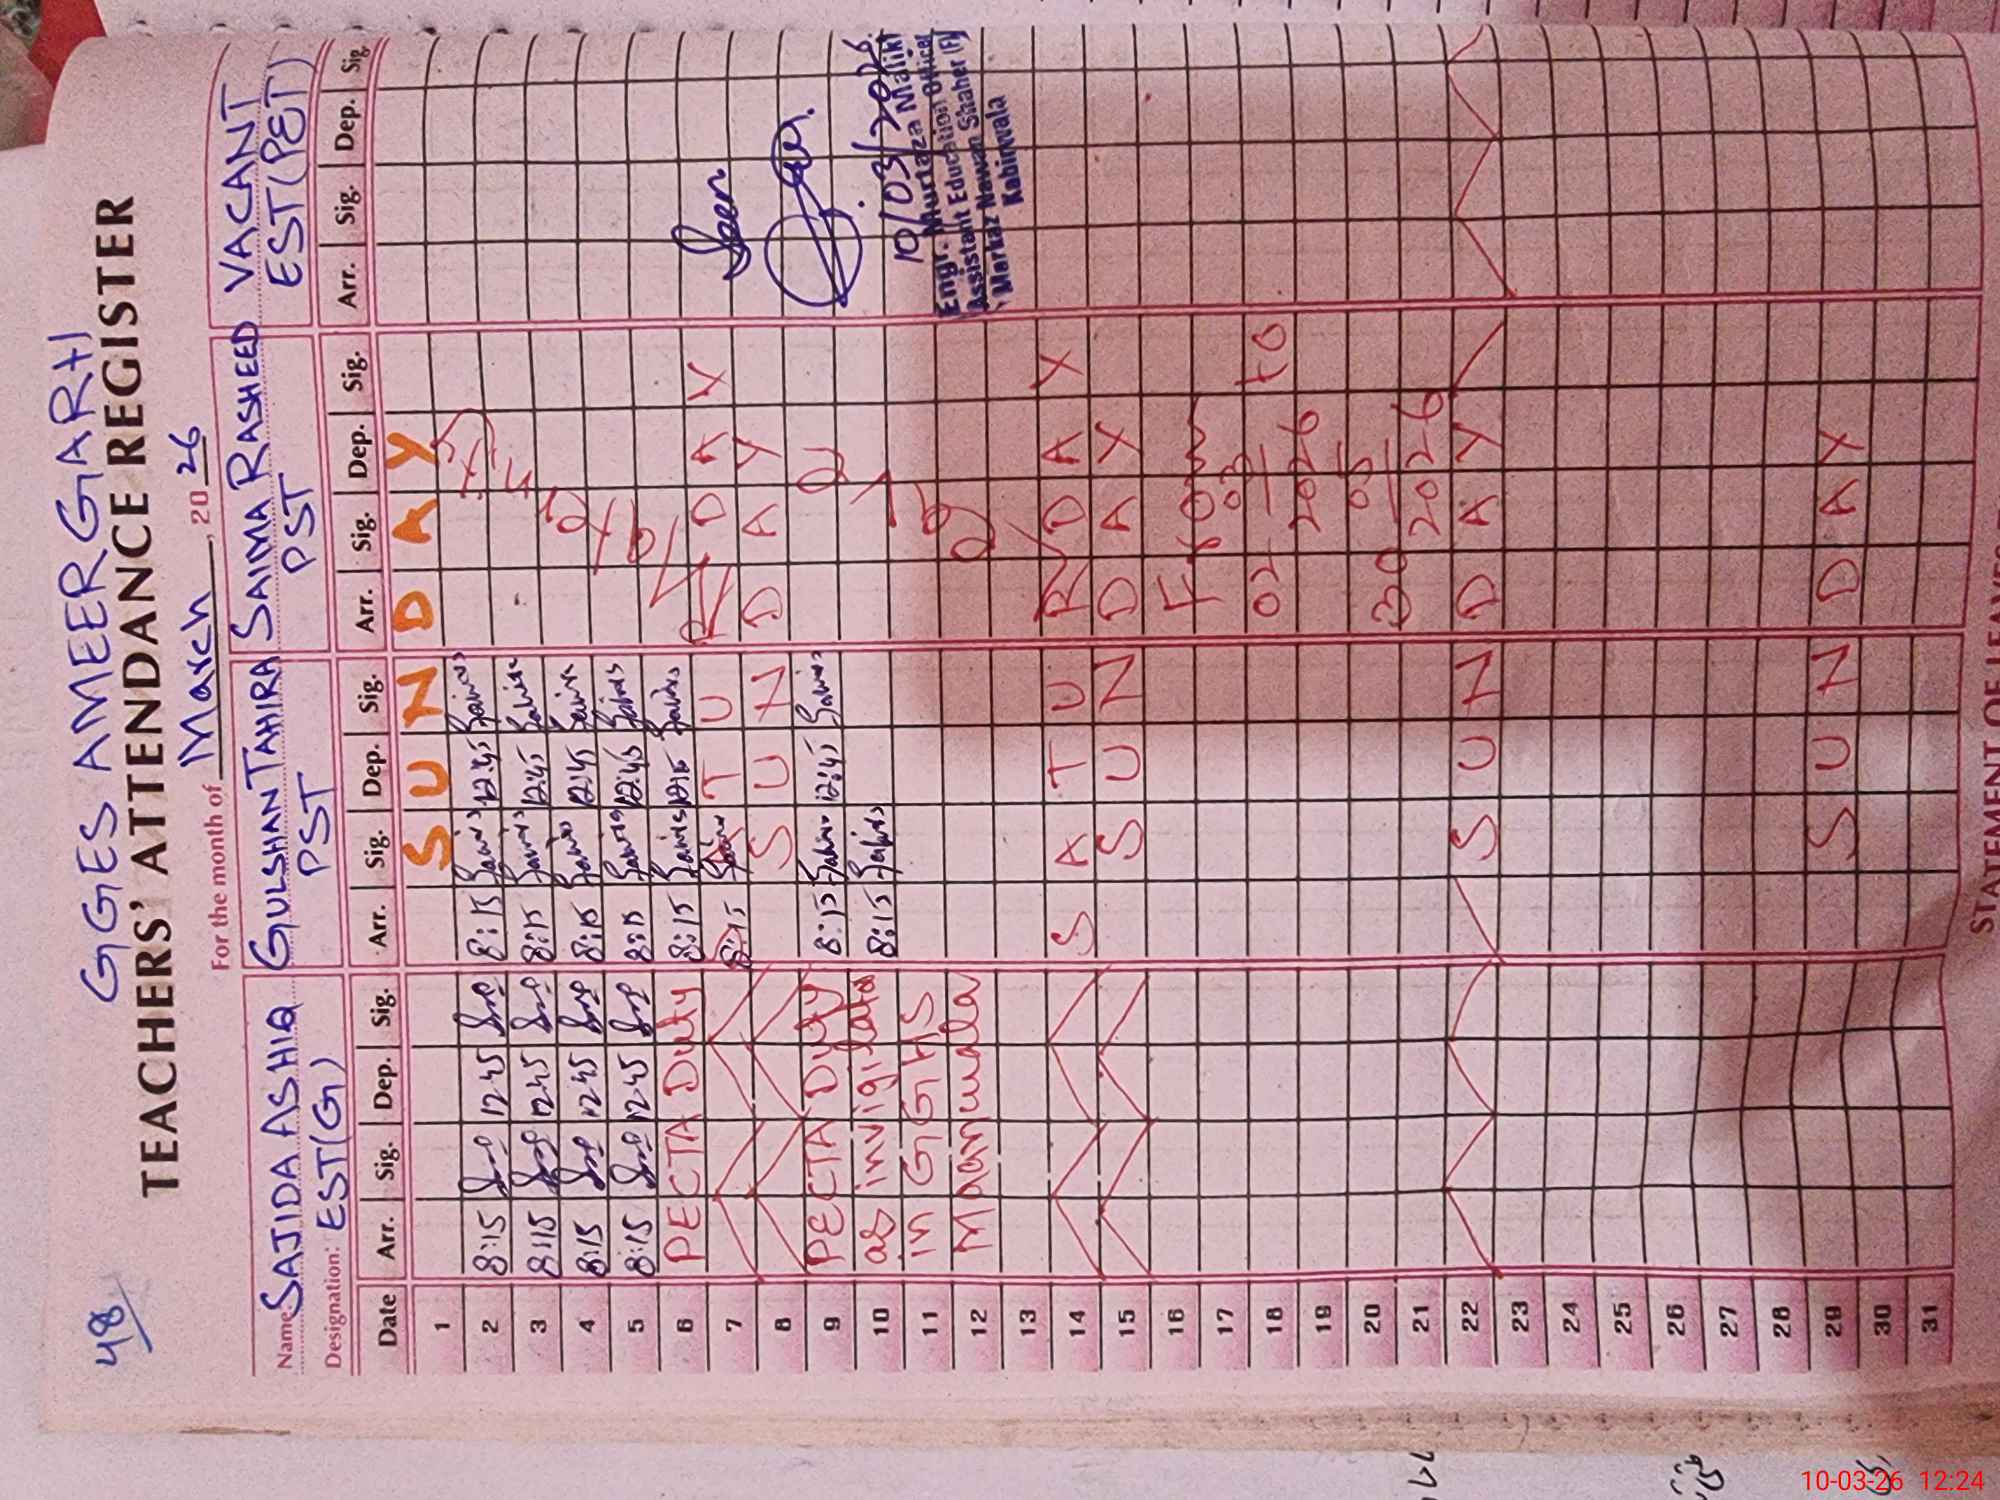 48
GGES AMEER GARHI
TEACHERS' ATTENDANCE REGISTER
For the month of March, 2026
Name: SAJIDA ASHIQ GULSHAN TAHIRA SAIMA RASHEED VACANT
Designation: EST(G) PST PST EST(PET)
Date Arr. Sig. Dep. Sig. Arr. Sig. Dep. Sig. Arr. Sig. Dep. Sig. Arr. Sig. Dep. Sig
1 SUNDAY
2 8:15 12:45 8:15 12:45
3 8:15 12:45 8:15 12:45
4 8:15 12:45 8:15 12:45
5 8:15 12:45 8:15 12:45
6 PECTA Duty 8:15 12:15
7 8:15 SATURDAY
8 SUNDAY
9 PECTA Duty 8:15 12:45
10 as invigilator 8:15
11 in GGHS
12 Mamuala
13
14 SATURDAY
15 SUNDAY
16 From
17 02 03
18 2026 to
19
20 30 05
21 2026
22 SUNDAY
23
24
25
26
27
28
29 SUNDAY
30
31
Seen
10/03/2026
Engr. Murtaza Malik
Assistant Education Officer
Markaz Nawan Shaher (F)
Kabirwala
STATEMENT OF LEAVES
10-03-26 12:24